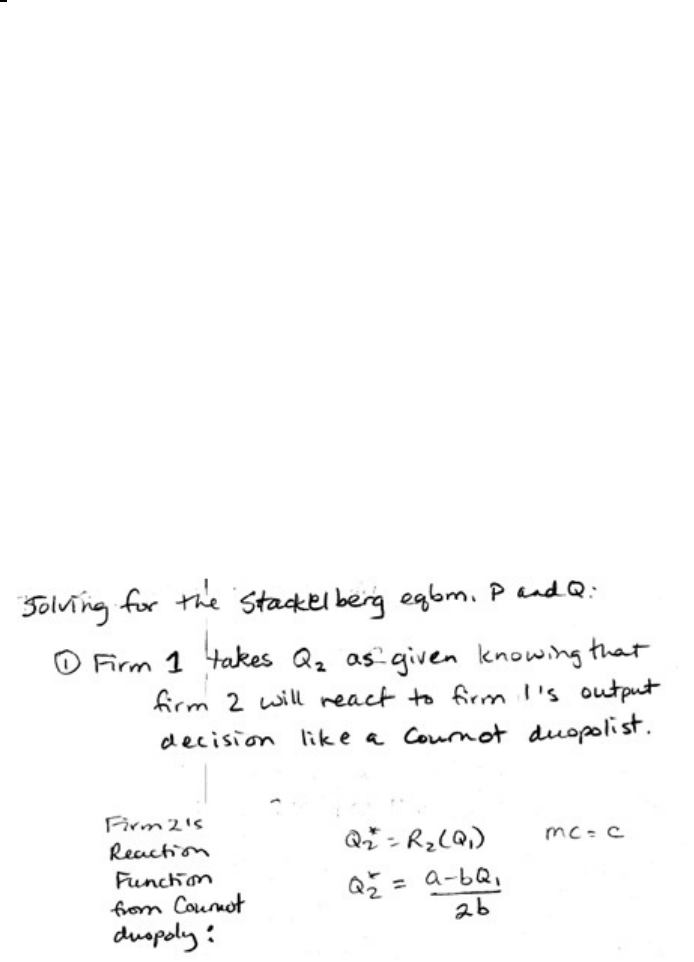 Solving for the Stackelberg eqbm. P and Q:
① Firm 1 takes Q₂ as given knowing that
firm 2 will react to firm 1's output
decision like a Cournot duopolist.
Firm 2's
Reaction
Function
from Cournot
duopoly:
Q₂* = R₂(Q₁) mc = c
Q₂* = (a-bQ₁)/2b